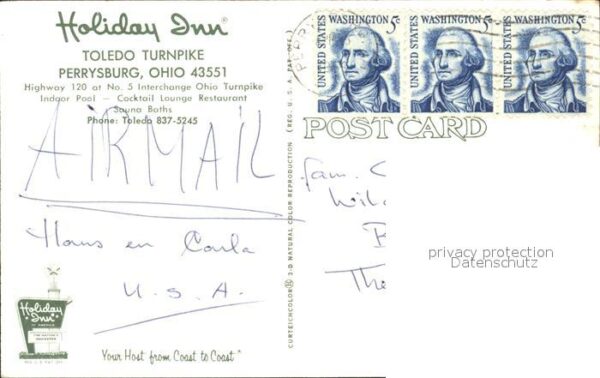 Holiday Inn®
TOLEDO TURNPIKE
PERRYSBURG, OHIO 43551
Highway 120 at No. 5 Interchange Ohio Turnpike
Indoor Pool — Cocktail Lounge Restaurant
Sauna Baths
Phone: Toledo 837-5245
AIRMAIL
Hans en Carla
U.S.A.
Holiday Inn
OF AMERICA
Your Host from Coast to Coast®
CURTEICHCOLOR® 3-D NATURAL COLOR REPRODUCTION (REG. U.S.A. PAT. OFF.)
UNITED STATES WASHINGTON 5c
UNITED STATES WASHINGTON 5c
UNITED STATES WASHINGTON 5c
POST CARD
fam.
The
privacy protection
Datenschutz